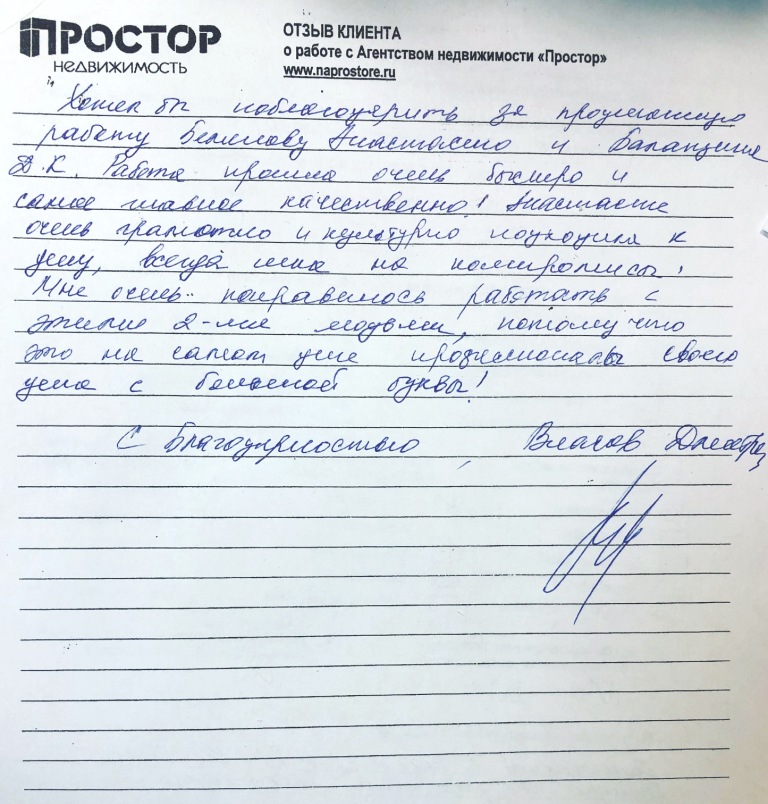 ПРОСТОР
НЕДВИЖИМОСТЬ
ОТЗЫВ КЛИЕНТА
о работе с Агентством недвижимости «Простор»
www.naprostore.ru
Хотел бы поблагодарить за проделанную
работу Анастасию и
Д.К. Работа прошла очень быстро и
самое главное качественно! Анастасия
очень грамотно и культурно подходила к
делу, всегда шла на компромиссы.
Мне очень понравилось работать с
этими 2-мя людьми, потому что
это на самом деле професионалы своего
дела с большой буквы!
С Благодарностью, Власов Дмитрий